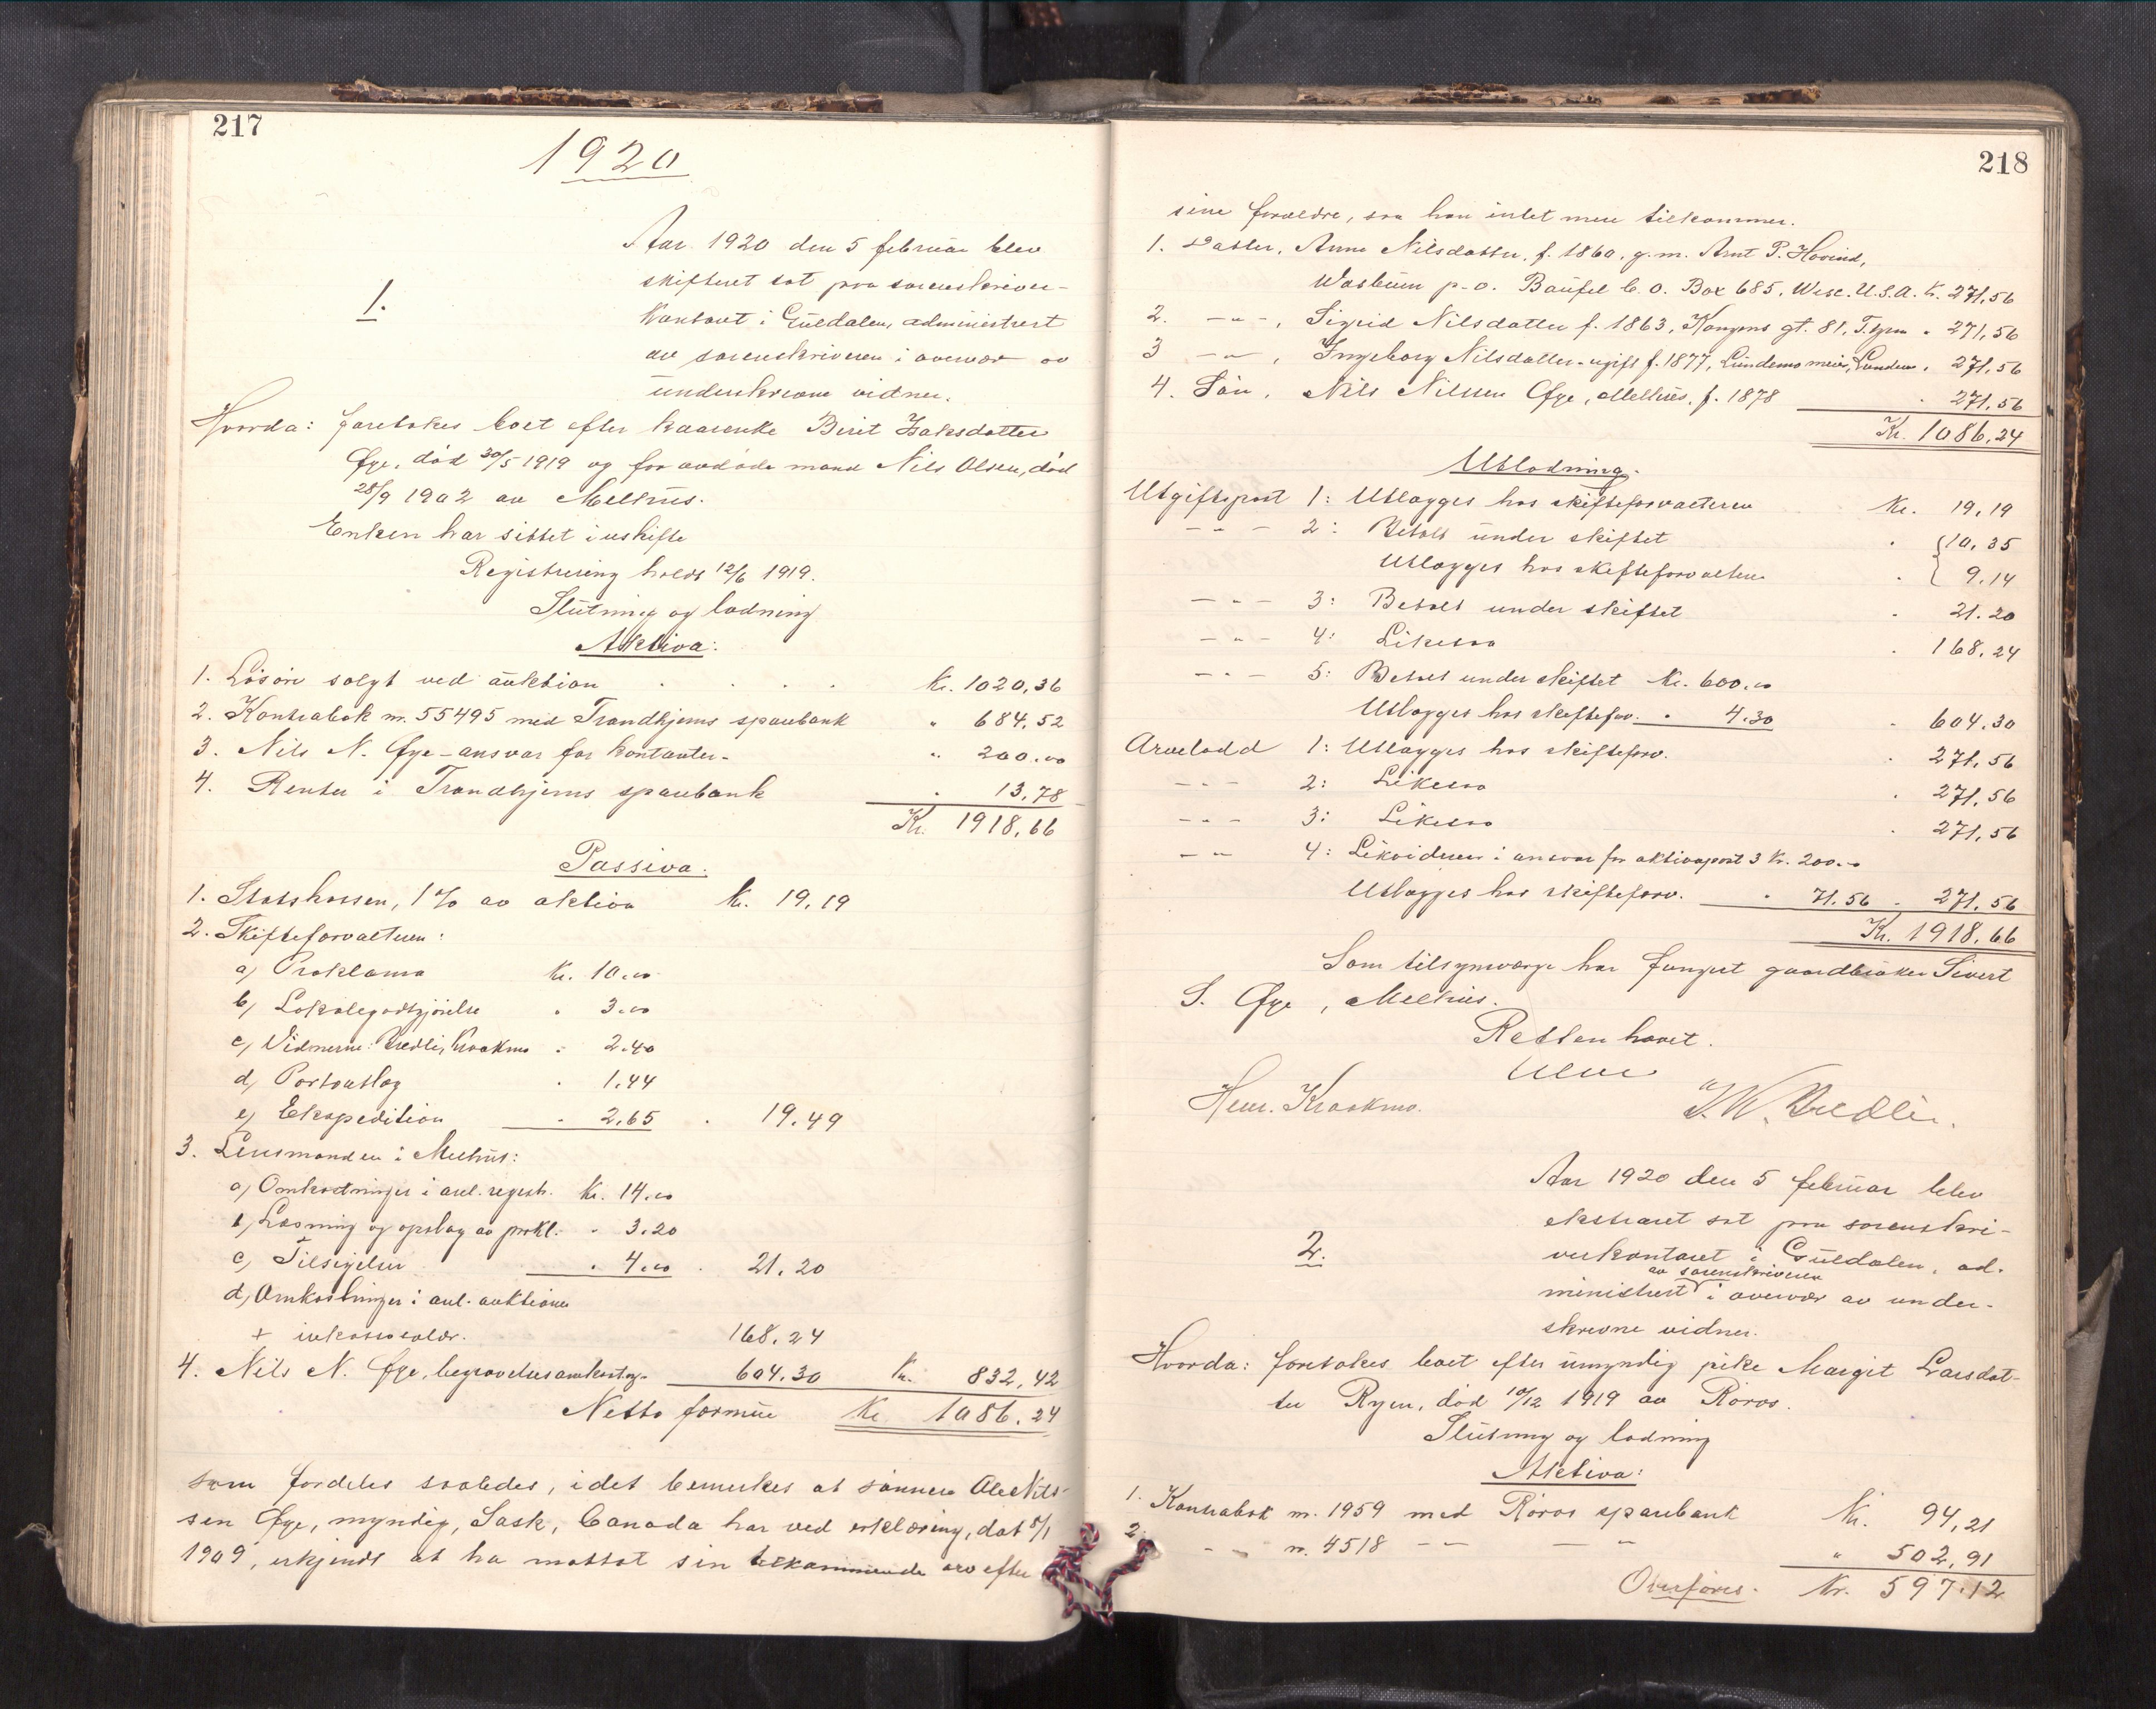 217
1920
1.
Aar 1920 den 5 februar blev
skifteret sat paa sorenskriver-
kontoret i Guldalen, administrert
av sorenskriveren i overvær av
underskrevne vidner.
Hvorda: foretokes boet efter kaarenke Berit Isaksdatter
Øye, død 30/5 1919 og før avdøde mand Nils Olsen, død
28/9 1902 av Melhus.
Enken har sittet i uskifte
Registrering holdt 12/6 1919.
Slutning og lodning
Aktiva:
1. Løsøre solgt ved auktion . . . . Kr. 1020,36
2. Kontrabok nr. 55495 med Trondhjems sparebank " 684,52
3. Nils N. Øye - ansvar for kontanter - " 200.00
4. Renter i Trondhjems sparebank " 13,78
Kr. 1918,66
Passiva.
1. Statskassen, 1% av aktiva Kr. 19,19
2. Skifteforvalteren:
a) Proklama Kr. 10.00
b) Lokalegodtgjørelse " 3.00
c) Vidnerne: Bredli, Kraakmo " 2.40
d) Portoutlæg " 1.44
e) Ekspedition " 2,65 " 19.49
3. Lensmanden i Melhus:
a) Omkostninger i anl. registr. Kr. 14.00
b) Læsning og opslag av prokl. " 3.20
c) Tilsigelser " 4.00 " 21.20
d) Omkostninger i anl. auktionen
+ inkassosalær. 168.24
4. Nils N. Øye, begravelsesomkostn. 604.30 Kr. 832,42
Netto formue Kr 1086.24
som fordeles saaledes, idet bemerkes at sønnen Ole Nils-
sen Øye, myndig, Sask, Canada har ved erklæring, dat 8/1
1909, erkjendt at ha mottat sin tilkommende arv efter
218
sine forældre, saa han intet mere tilkommer.
1. Datter, Anne Nilsdatter, f. 1860, g.m. Arnt P. Hovind,
p.o. Box 685, Wisc. U.S.A. Kr. 271,56
2. - " - , Sigrid Nilsdatter f. 1863, Kongens gt. 81, T.hjem " 271,56
3 - " - , Ingeborg Nilsdatter - ugift f. 1877, Lundemo meieri, Lundemo " 271,56
4. Søn, Nils Nilssen Øye, Melhus, f. 1878 " 271,56
Kr. 1086,24
Utlodning.
Utgiftspost 1: Utlægges hos skifteforvalteren Kr. 19,19
- " - 2: Betalt under skiftet " { 10,35
Utlægges hos skifteforvalteren " { 9.14
- " - 3: Betalt under skiftet " 21.20
- " - 4: Likesaa " 168,24
- " - 5: Betalt under skiftet Kr. 600.00
Utlægges hos skifteforv. " 4.30 " 604.30
Arvelodd 1: Utlægges hos skifteforv. " 271,56
- " - 2: Likesaa " 271,56
- " - 3: Likesaa " 271,56
- " - 4: Likvideres i ansvar for aktivapost 3 Kr. 200.-
Utlægges hos skifteforv. " 71.56 " 271,56
Kr. 1918,66
Som tilsynsværge har fungert gaardbruker Sivert
S. Øye, Melhus.
Retten hævet.
Henr. Kraakmo. Bredli.
2.
Aar 1920 den 5 februar blev
ekstraret sat paa sorenskri-
verkontoret i Guldalen, ad-
av sorenskriveren
ministrert i overvær av under-
skrevne vidner.
Hvorda: foretokes boet efter umyndig pike Margit Larsdat-
ter Ryen, død 10/12 1919 av Røros.
Slutning og lodning
Aktiva:
1. Kontrabok nr. 1959 med Røros sparebank Kr. 94,21
2. - " - nr. 4518 - " - - " - " 502,91
Overføres. Kr. 597.12